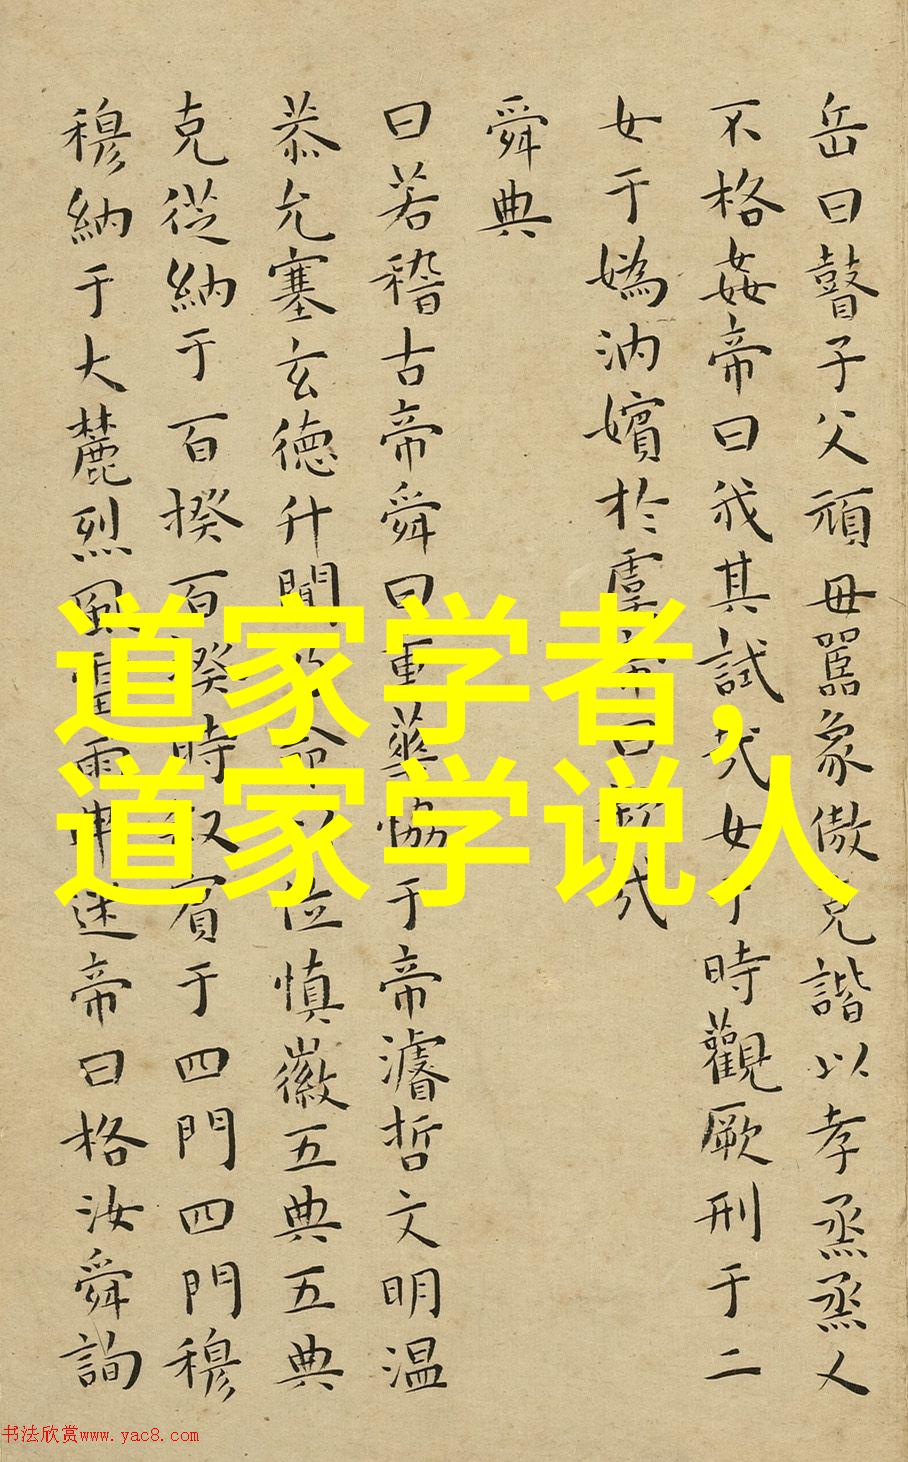 岳曰瞽子父頑毋嚚象傲克諧以孝烝烝乂
不格姦帝曰我其試哉女于時觀厥刑于二
女于媯汭嬪於虞帝曰欽哉
舜典
曰若稽古帝舜曰重華協于帝濬哲文明温
恭允塞玄德升聞乃命以位慎徽五典五典
克從納于百揆百揆時叙賓于四門四門穆
穆納于大麓烈風雷雨弗迷帝曰格汝舜詢
道家学者,
道家学说人
书法欣赏www.yac8.com